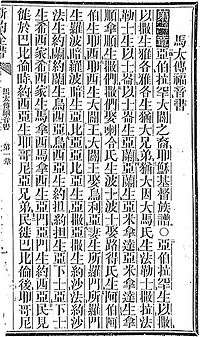 馬太傳福音書
第一章亞伯拉罕大闢之裔耶穌基督族譜○亞伯拉罕生以撒
以撒生雅各雅各生猶大兄弟猶大與大馬氏生法勒士撒拉法
勒士生以士崙以士崙生亞蘭亞蘭生亞米拿達亞米拿達生拿
順拿順生撒門撒門娶喇合氏生波士波士娶路得氏生阿伯阿
伯生耶西耶西生大闢王大闢王娶烏利亞妻生所羅門所羅門
生羅波暗羅波暗生亞比亞亞比亞生亞撒亞撒生約沙法約沙
法生約蘭約蘭生烏西亞烏西亞生約擔約擔生亞士亞士
生希西家希西家生馬拿西馬拿西生亞門亞門生約西亞民見
徙於巴比倫時約西亞生耶哥尼亞兄弟民徙巴比倫後耶哥尼
新約全書 馬太傳福音書 第一章